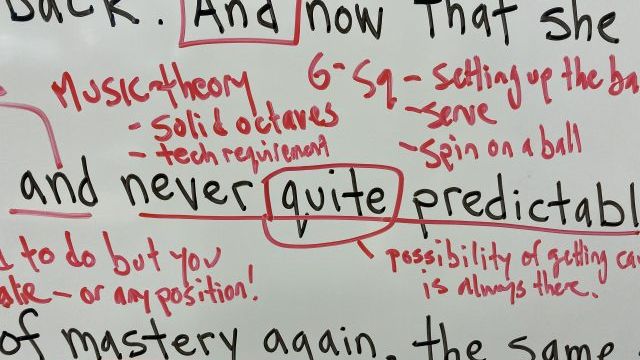 back. And now that she
Music theory
- solid octaves
- tech requirement
6-Sq - setting up the ba
- serve
- spin on a ball
and never quite predictabl
to do but you
- or any position!
possibility of getting ca
is always there.
of mastery again, the same